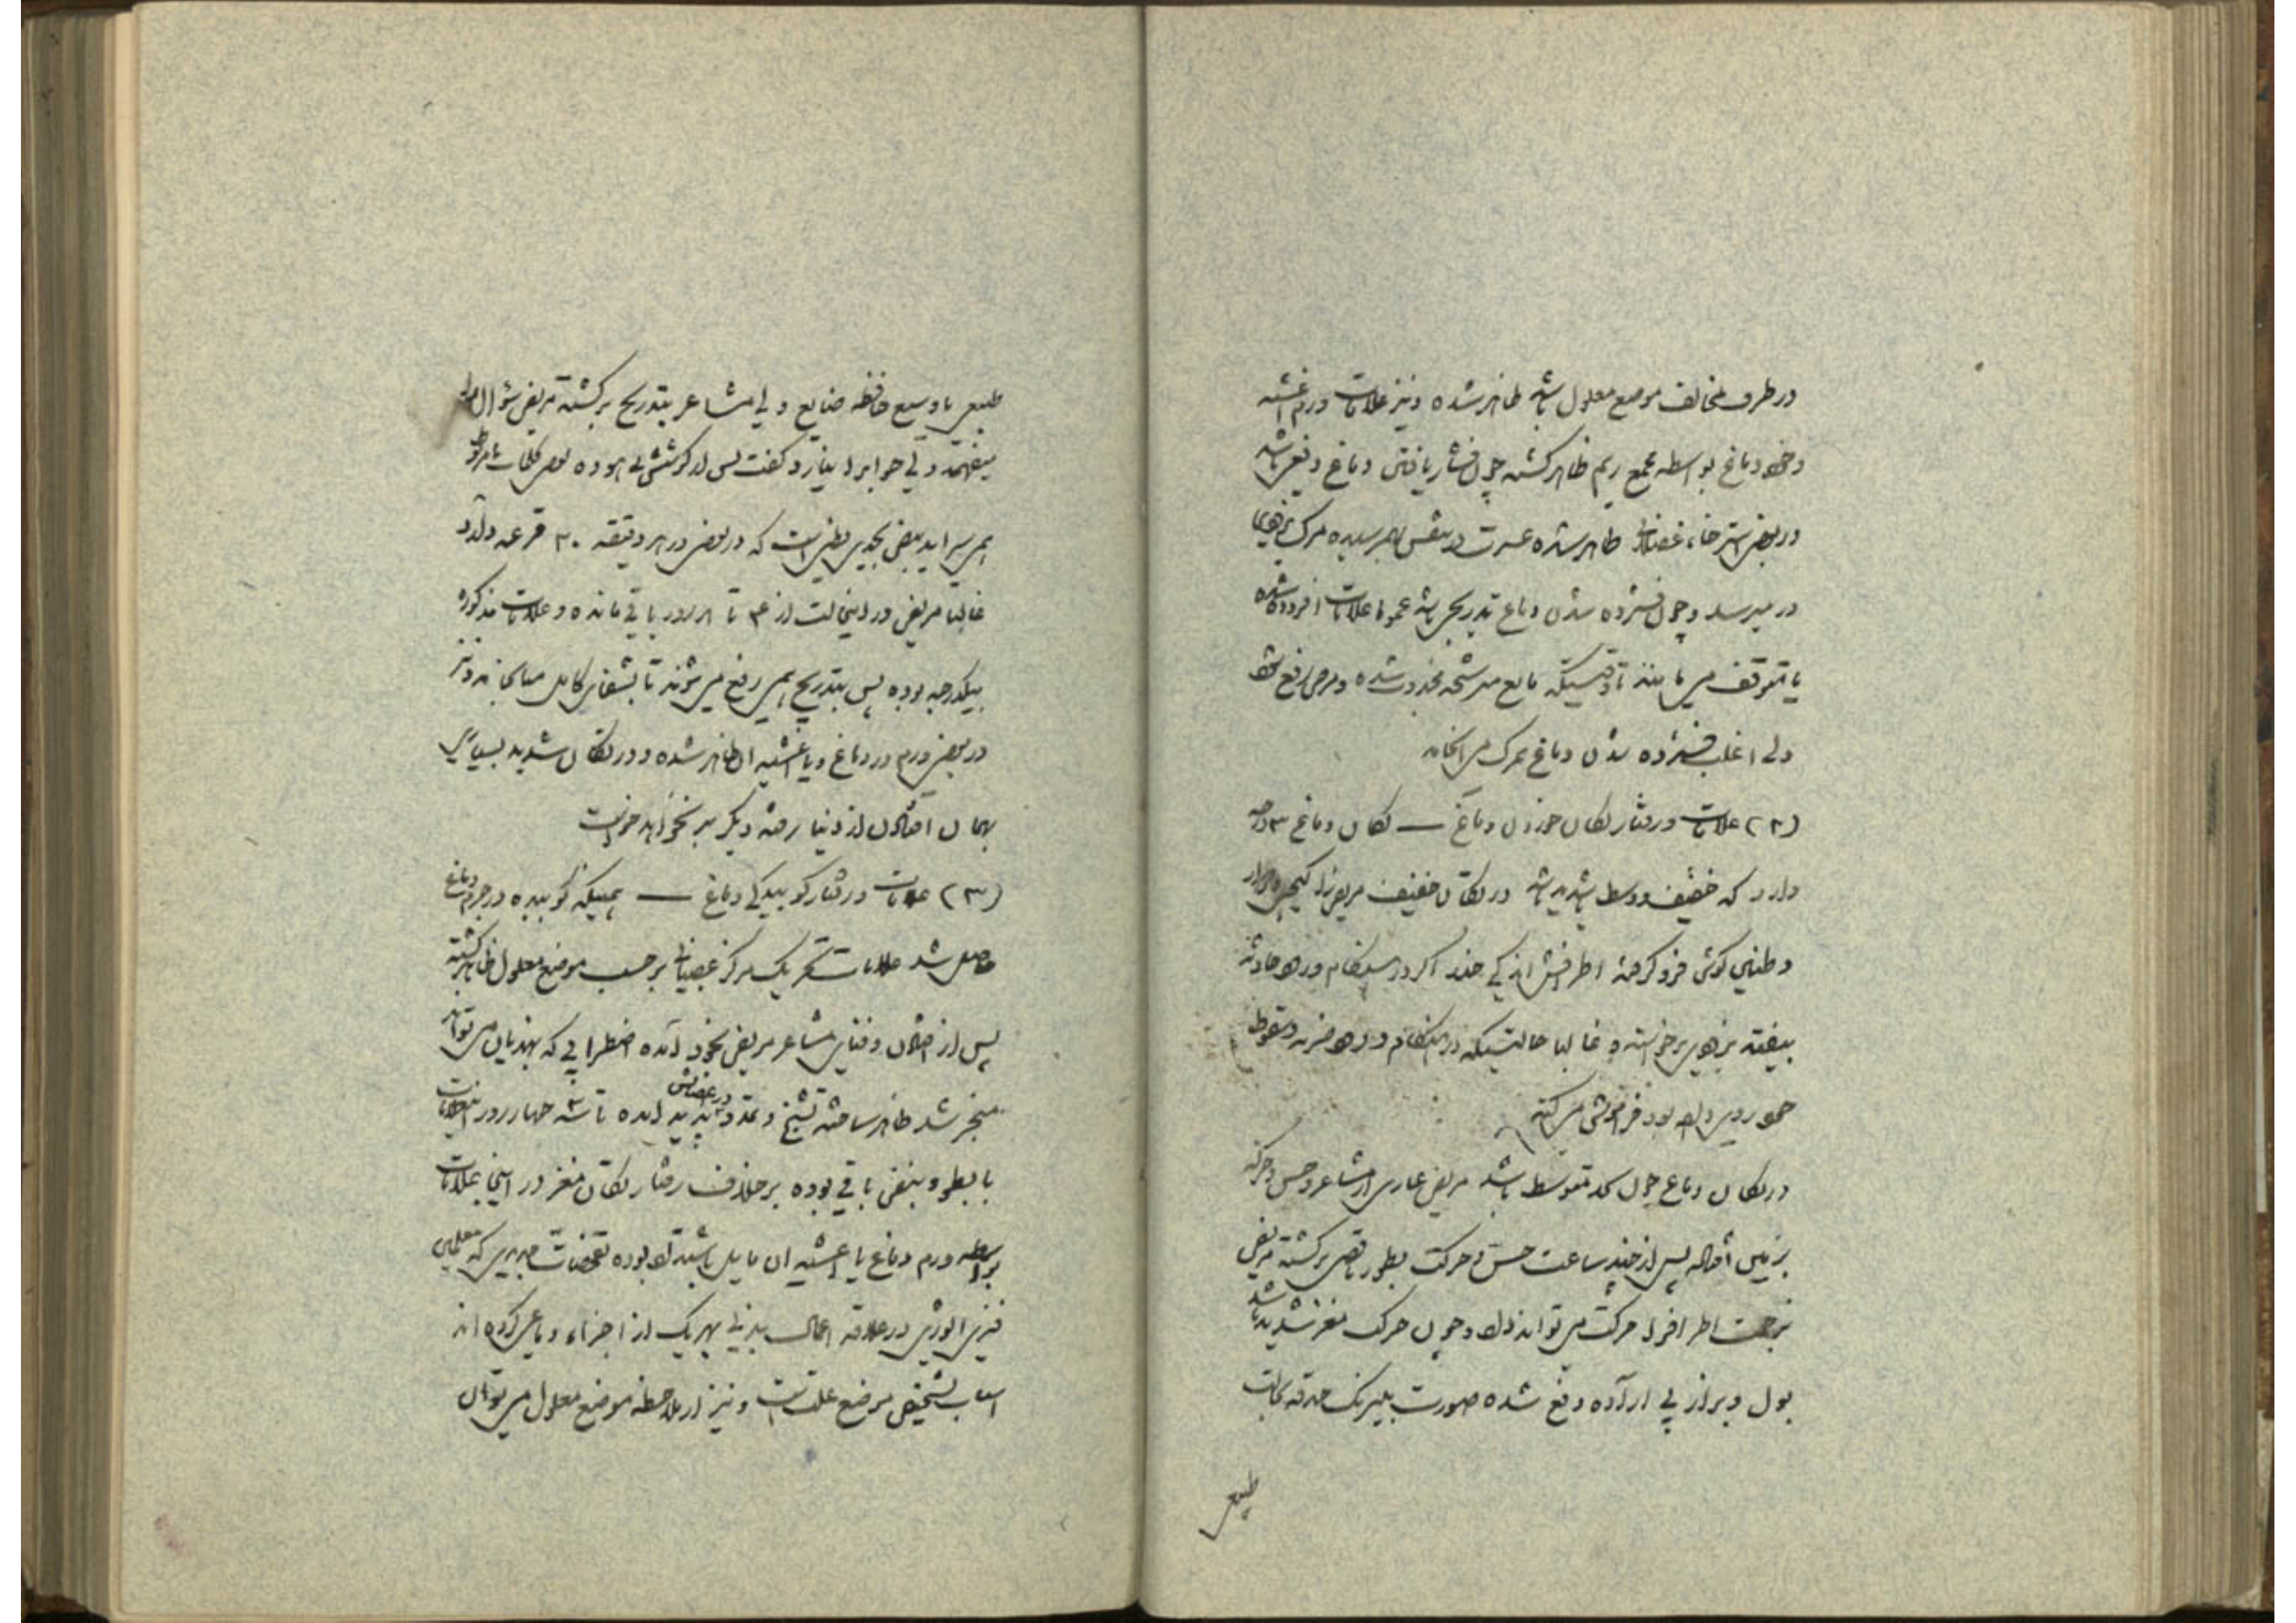 در طرف مخالف موضع معلول باشد ظاهر شده و نیز علامات ورم اغشیه
و خود دماغ بواسطه تجمع ریم ظاهر گشته چون فشار یافتن دماغ دفعی باشد
در بعضی استرخاء عضلات ظاهر شده عسرت در تنفس بهم رسیده مرگ بزودی
در میرسد و چون فشرده شدن دماغ تدریجی باشد عموما علامات افزوده شده
یا متوقف می مانند تا وقتیکه مایع مترشحه مجذوب شده و مرض رفع شود
ولی اغلب فشرده شدن دماغ بمرگ می انجامد
(۲) علامات و رفتار تکان خوردن دماغ — تکان دماغ ۳ درجه
دارد که خفیف و وسط و شدید باشد در تکان خفیف مریض را گیجی و دوار
و طنین گوش فرو گرفته اطرافش اندکی
بیفتد بزودی برخواسته و غالبا حالتیکه در هنگام ورود ضربه و سقوط
بود فراموش می کند
در تکان دماغ چون بحد متوسط باشد مریض عاری از مشاعر و حس و حرکة
بزمین افتاده پس از چند ساعت حس و حرکت بطور ناقص برگشته مریض
بزحمت اطراف را حرکت می تواند داد و چون حرکت مغز شدید باشد
بول و براز بی اراده دفع شده صورت بیرنگ حدقه بحالت
طبیعی
طبیعی یا وسیع حافظه ضایع ولی مشاعر بتدریج برگشته مریض سؤال را
میفهمد ولی جواب را نیارد گفت پس از کوشش بیهوده بعضی کلمات نامربوط
همی سراید نبض بحدی بطی است که در بعضی در هر دقیقه ۳۰ قرعه دارد
غالبا مریض در اینحالت از ۳ تا روز باقی مانده و علامات مذکوره
بیکدرجه بوده پس بتدریج همی رفع می شوند تا بشفای کامل میانجامد و نیز
در بعضی ورم در دماغ و یا اغشیه آن ظاهر شده و در تکان شدید بسیاری
بهمان افتادن از دنیا رفته دیگر بر نخواهد خواست
(۳) علامات و رفتار کوبیدگی دماغ — همینکه کوبیده در جرم دماغ
حاصل شد علامات تحریک مرکز عصبانی بر حسب موضع معلول ظاهر گشته
پس از افتادن و فنای مشاعر مریض بخود آمده اضطرابی که بهذیان می تواند
منجر شد ظاهر ساخته تشنج و تمدد در عضلاتش پدید آمده تا سه چهار روز این علامات
با بطؤ نبض باقی بوده بر خلاف رفتار تکان مغز در اینجا علامات
بواسطه ورم دماغ یا اغشیه آن مایل باشتداد بوده تفحصات جدیدی که معلمین
فیزیالوژی در علاقه اعمال بدنی بهریک از اجزاء دماغی کرده اند
اسباب تشخیص موضع علت است و نیز از ملاحظه موضع معلول می توان